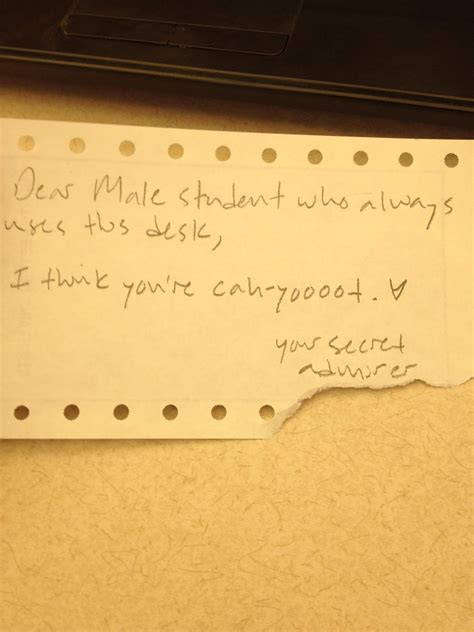 Dear Male student who always
uses this desk,
I think you're cah-yoooot.
your secret
admirer